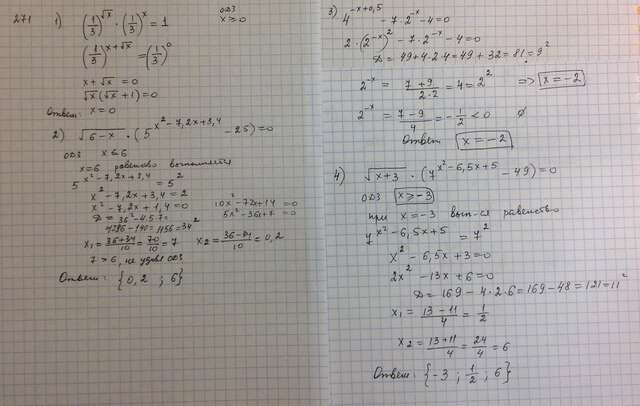 271 1) (1/3)^√x · (1/3)^x = 1
ОДЗ
x ≥ 0
(1/3)^(x+√x) = (1/3)^0
x + √x = 0
√x(√x + 1) = 0
Ответ: x = 0
2) √(6-x) · (5^(x²-7,2x+3,4) - 25) = 0
ОДЗ x ≤ 6
x = 6 равенство выполняется
5^(x²-7,2x+3,4) = 5²
x² - 7,2x + 3,4 = 2
x² - 7,2x + 1,4 = 0
10x² - 72x + 14 = 0
5x² - 36x + 7 = 0
D = 36² - 4·5·7 =
1296 - 140 = 1156 = 34²
x₁ = (36+34)/10 = 70/10 = 7
x₂ = (36-34)/10 = 0,2
7 > 6, не удовл ОДЗ
Ответ: {0,2 ; 6}
3) 4^(-x+0,5) - 7·2^(-x) - 4 = 0
2·(2^(-x))² - 7·2^(-x) - 4 = 0
D = 49 + 4·2·4 = 49 + 32 = 81 = 9²
2^(-x) = (7+9)/(2·2) = 4 = 2² => x = -2
2^(-x) = (7-9)/4 = -1/2 < 0 ∅
Ответ x = -2
4) √(x+3) · (7^(x²-6,5x+5) - 49) = 0
ОДЗ x ≥ -3
при x = -3 вып-ся равенство
7^(x²-6,5x+5) = 7²
x² - 6,5x + 3 = 0
2x² - 13x + 6 = 0
D = 169 - 4·2·6 = 169 - 48 = 121 = 11²
x₁ = (13-11)/4 = 1/2
x₂ = (13+11)/4 = 24/4 = 6
Ответ: {-3 ; 1/2 ; 6}